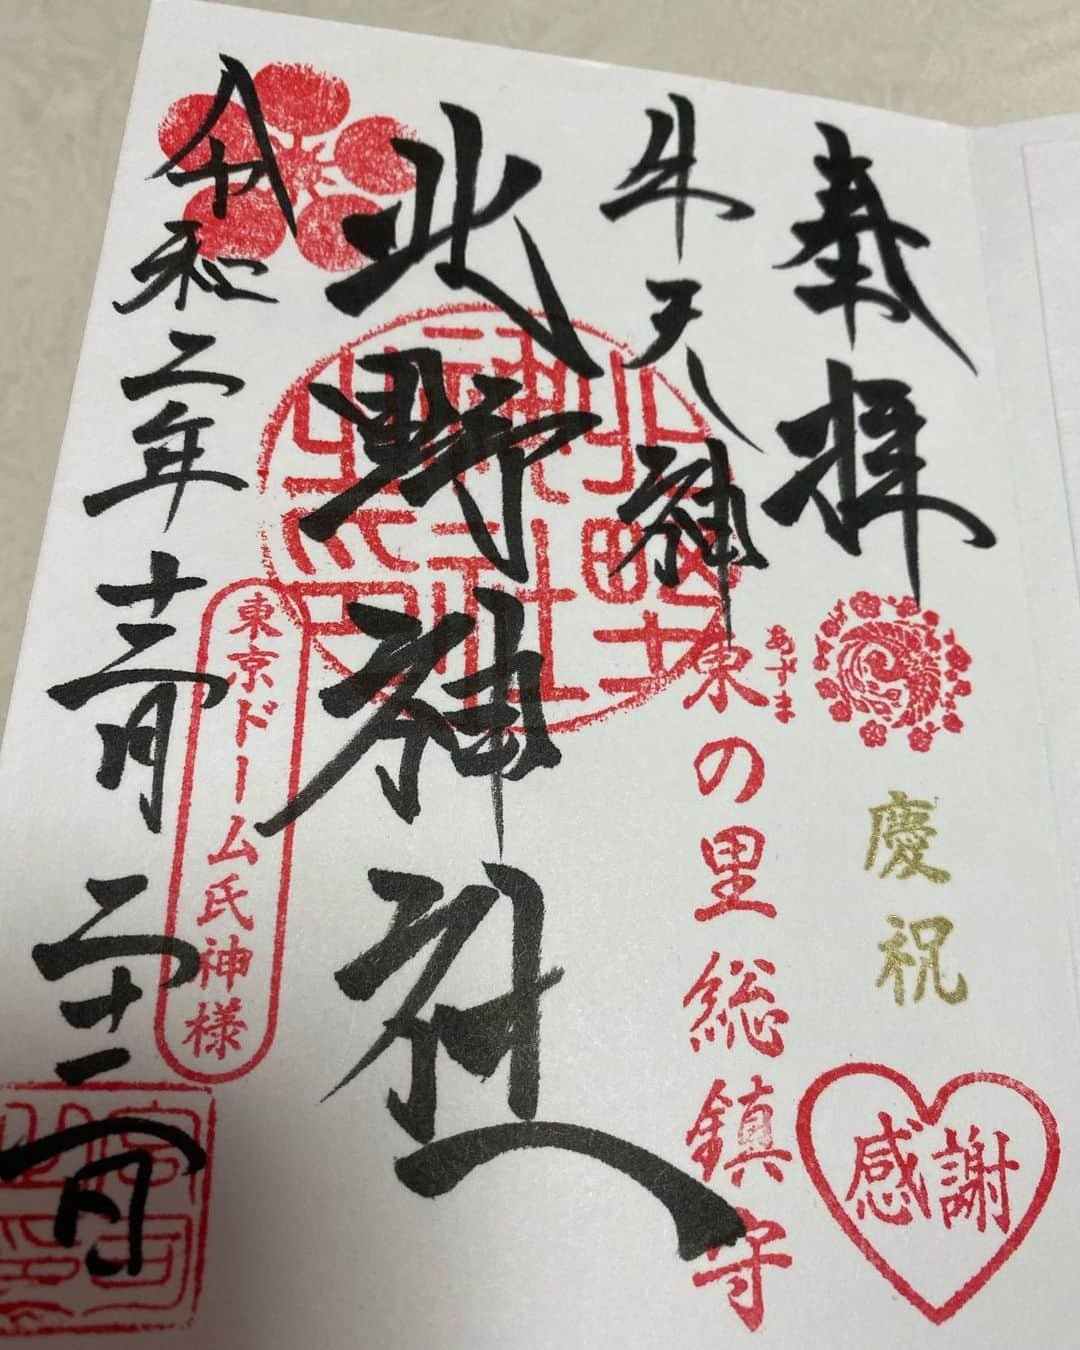 奉拝
慶祝
感謝
牛天神
あずま
東の里総鎮守
北野神社
令和二年十二月二十一日
東京ドーム氏神様